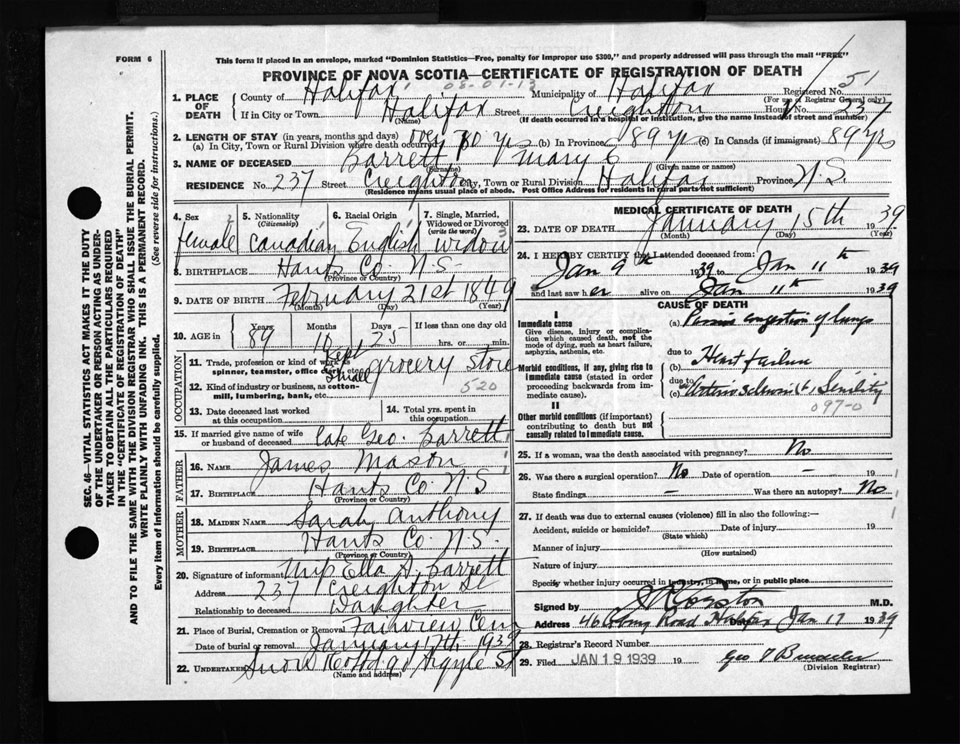 FORM 6
This form if placed in an envelope, marked "Dominion Statistics—Free, penalty for improper use $300," and properly addressed will pass through the mail "FREE"
PROVINCE OF NOVA SCOTIA—CERTIFICATE OF REGISTRATION OF DEATH
08-01-13
51
1. PLACE OF DEATH
County of Halifax Municipality of Halifax Registered No.
(For use of Registrar General only)
If in City or Town Halifax Street Creighton House No. 237
(Name) (If death occurred in a hospital or institution, give the name instead of street and number)
2. LENGTH OF STAY (in years, months and days)
(a) In City, Town or Rural Division where death occurred over 70 yrs (b) In Province 89 yrs (c) In Canada (if immigrant) 89 yrs
3. NAME OF DECEASED Barrett, Mary E
(Surname) (Given name or names)
RESIDENCE No. 237 Street Creighton City, Town or Rural Division Halifax Province N.S.
(Residence means usual place of abode. Post Office Address for residents in rural parts not sufficient)
4. Sex female
5. Nationality (Citizenship) Canadian
6. Racial Origin English
7. Single, Married, Widowed or Divorced (write the word) widow
8. BIRTHPLACE Hants Co N.S.
(Province or Country)
9. DATE OF BIRTH February 21st 1849
(Month) (Day) (Year)
10. AGE in Years 89 Months 10 Days 25 If less than one day old hrs. or min.
OCCUPATION
11. Trade, profession or kind of work as spinner, teamster, office clerk, etc. Kept small grocery store
12. Kind of industry or business, as cotton-mill, lumbering, bank, etc. 520
13. Date deceased last worked at this occupation
14. Total yrs. spent in this occupation
15. If married give name of wife or husband of deceased late Geo. Barrett
FATHER
16. NAME James Mason
17. BIRTHPLACE Hants Co N.S
(Province or Country)
MOTHER
18. MAIDEN NAME Sarah Anthony
19. BIRTHPLACE Hants Co. N.S.
(Province or Country)
20. Signature of informant Miss Ella A. Barrett
Address 237 Creighton St
Relationship to deceased Daughter
21. Place of Burial, Cremation or Removal Fairview Cem
Date of burial or removal January 17th 1939
22. UNDERTAKER Snow & Co Argyle St
(Name and address)
MEDICAL CERTIFICATE OF DEATH
23. DATE OF DEATH January 15th 1939
(Month) (Day) (Year)
24. I HEREBY CERTIFY that I attended deceased from:
Jan 9th 1939 to Jan 11th 1939
and last saw her alive on Jan 11th 1939
CAUSE OF DEATH
I
Immediate cause
Give disease, injury or complication which caused death, not the mode of dying, such as heart failure, asphyxia, asthenia, etc.
(a) Passive congestion of lungs
due to
Morbid conditions, if any, giving rise to immediate cause (stated in order proceeding backwards from immediate cause).
(b) Heart failure
due to
(c) Arteriosclerosis, Senility
097-0
II
Other morbid conditions (if important) contributing to death but not causally related to immediate cause.
25. If a woman, was the death associated with pregnancy? No
26. Was there a surgical operation? No Date of operation — 19
State findings — Was there an autopsy? No
27. If death was due to external causes (violence) fill in also the following:—
Accident, suicide or homicide? Date of injury 19
(State which)
Manner of injury
(How sustained)
Nature of injury
Specify whether injury occurred in industry, in home, or in public place
Signed by M.D.
Address 46 Road Halifax Date Jan 17 1939
28. Registrar's Record Number
29. Filed JAN 19 1939 19 Geo
(Division Registrar)
SEC. 46—VITAL STATISTICS ACT MAKES IT THE DUTY
OF THE UNDERTAKER OR PERSON ACTING AS UNDER-
TAKER TO OBTAIN ALL THE PARTICULARS REQUIRED
IN THE "CERTIFICATE OF REGISTRATION OF DEATH"
AND TO FILE THE SAME WITH THE DIVISION REGISTRAR WHO SHALL ISSUE THE BURIAL PERMIT.
WRITE PLAINLY WITH UNFADING INK. THIS IS A PERMANENT RECORD.
Every item of information should be carefully supplied. (See reverse side for instructions.)